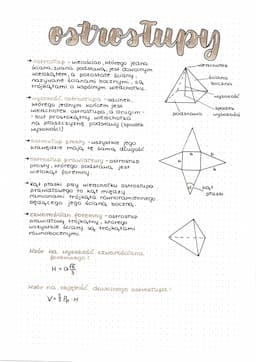 ostrosłupy
→ ostrosłup - wielościan, którego jedna
ściana, zwana podstawą, jest dowolnym
wielokątem, a pozostałe ściany,
nazywane ścianami bocznymi, są
trójkątami o wspólnym wierzchołku.
wierzchołek
ściana
boczna
wysokość
spodek
wysokości
podstawa
→ wysokość ostrosłupa - odcinek,
którego jednym końcem jest
wierzchołek ostrosłupa, a drugim -
rzut prostokątny wierzchołka
na płaszczyznę podstawy (spodek
wysokości)
→ ostrosłup prosty - wszystkie jego
krawędzie mają tę samą długość
→ ostrosłup prawidłowy - ostrosłup
prosty, którego podstawą jest
wielokąt foremny.
→ kąt płaski przy wierzchołku ostrosłupa
prawidłowego to kąt między
ramionami trójkąta równoramiennego
będącego jego ścianą boczną.
kąt
płaski
→ czworościan foremny - ostrosłup
prawidłowy trójkątny, którego
wszystkie ściany są trójkątami
równobocznymi.
Wzór na wysokość czworościanu
foremnego:
Wzór na objętość dowolnego ostrosłupa:
V = ⅓ Pp · H